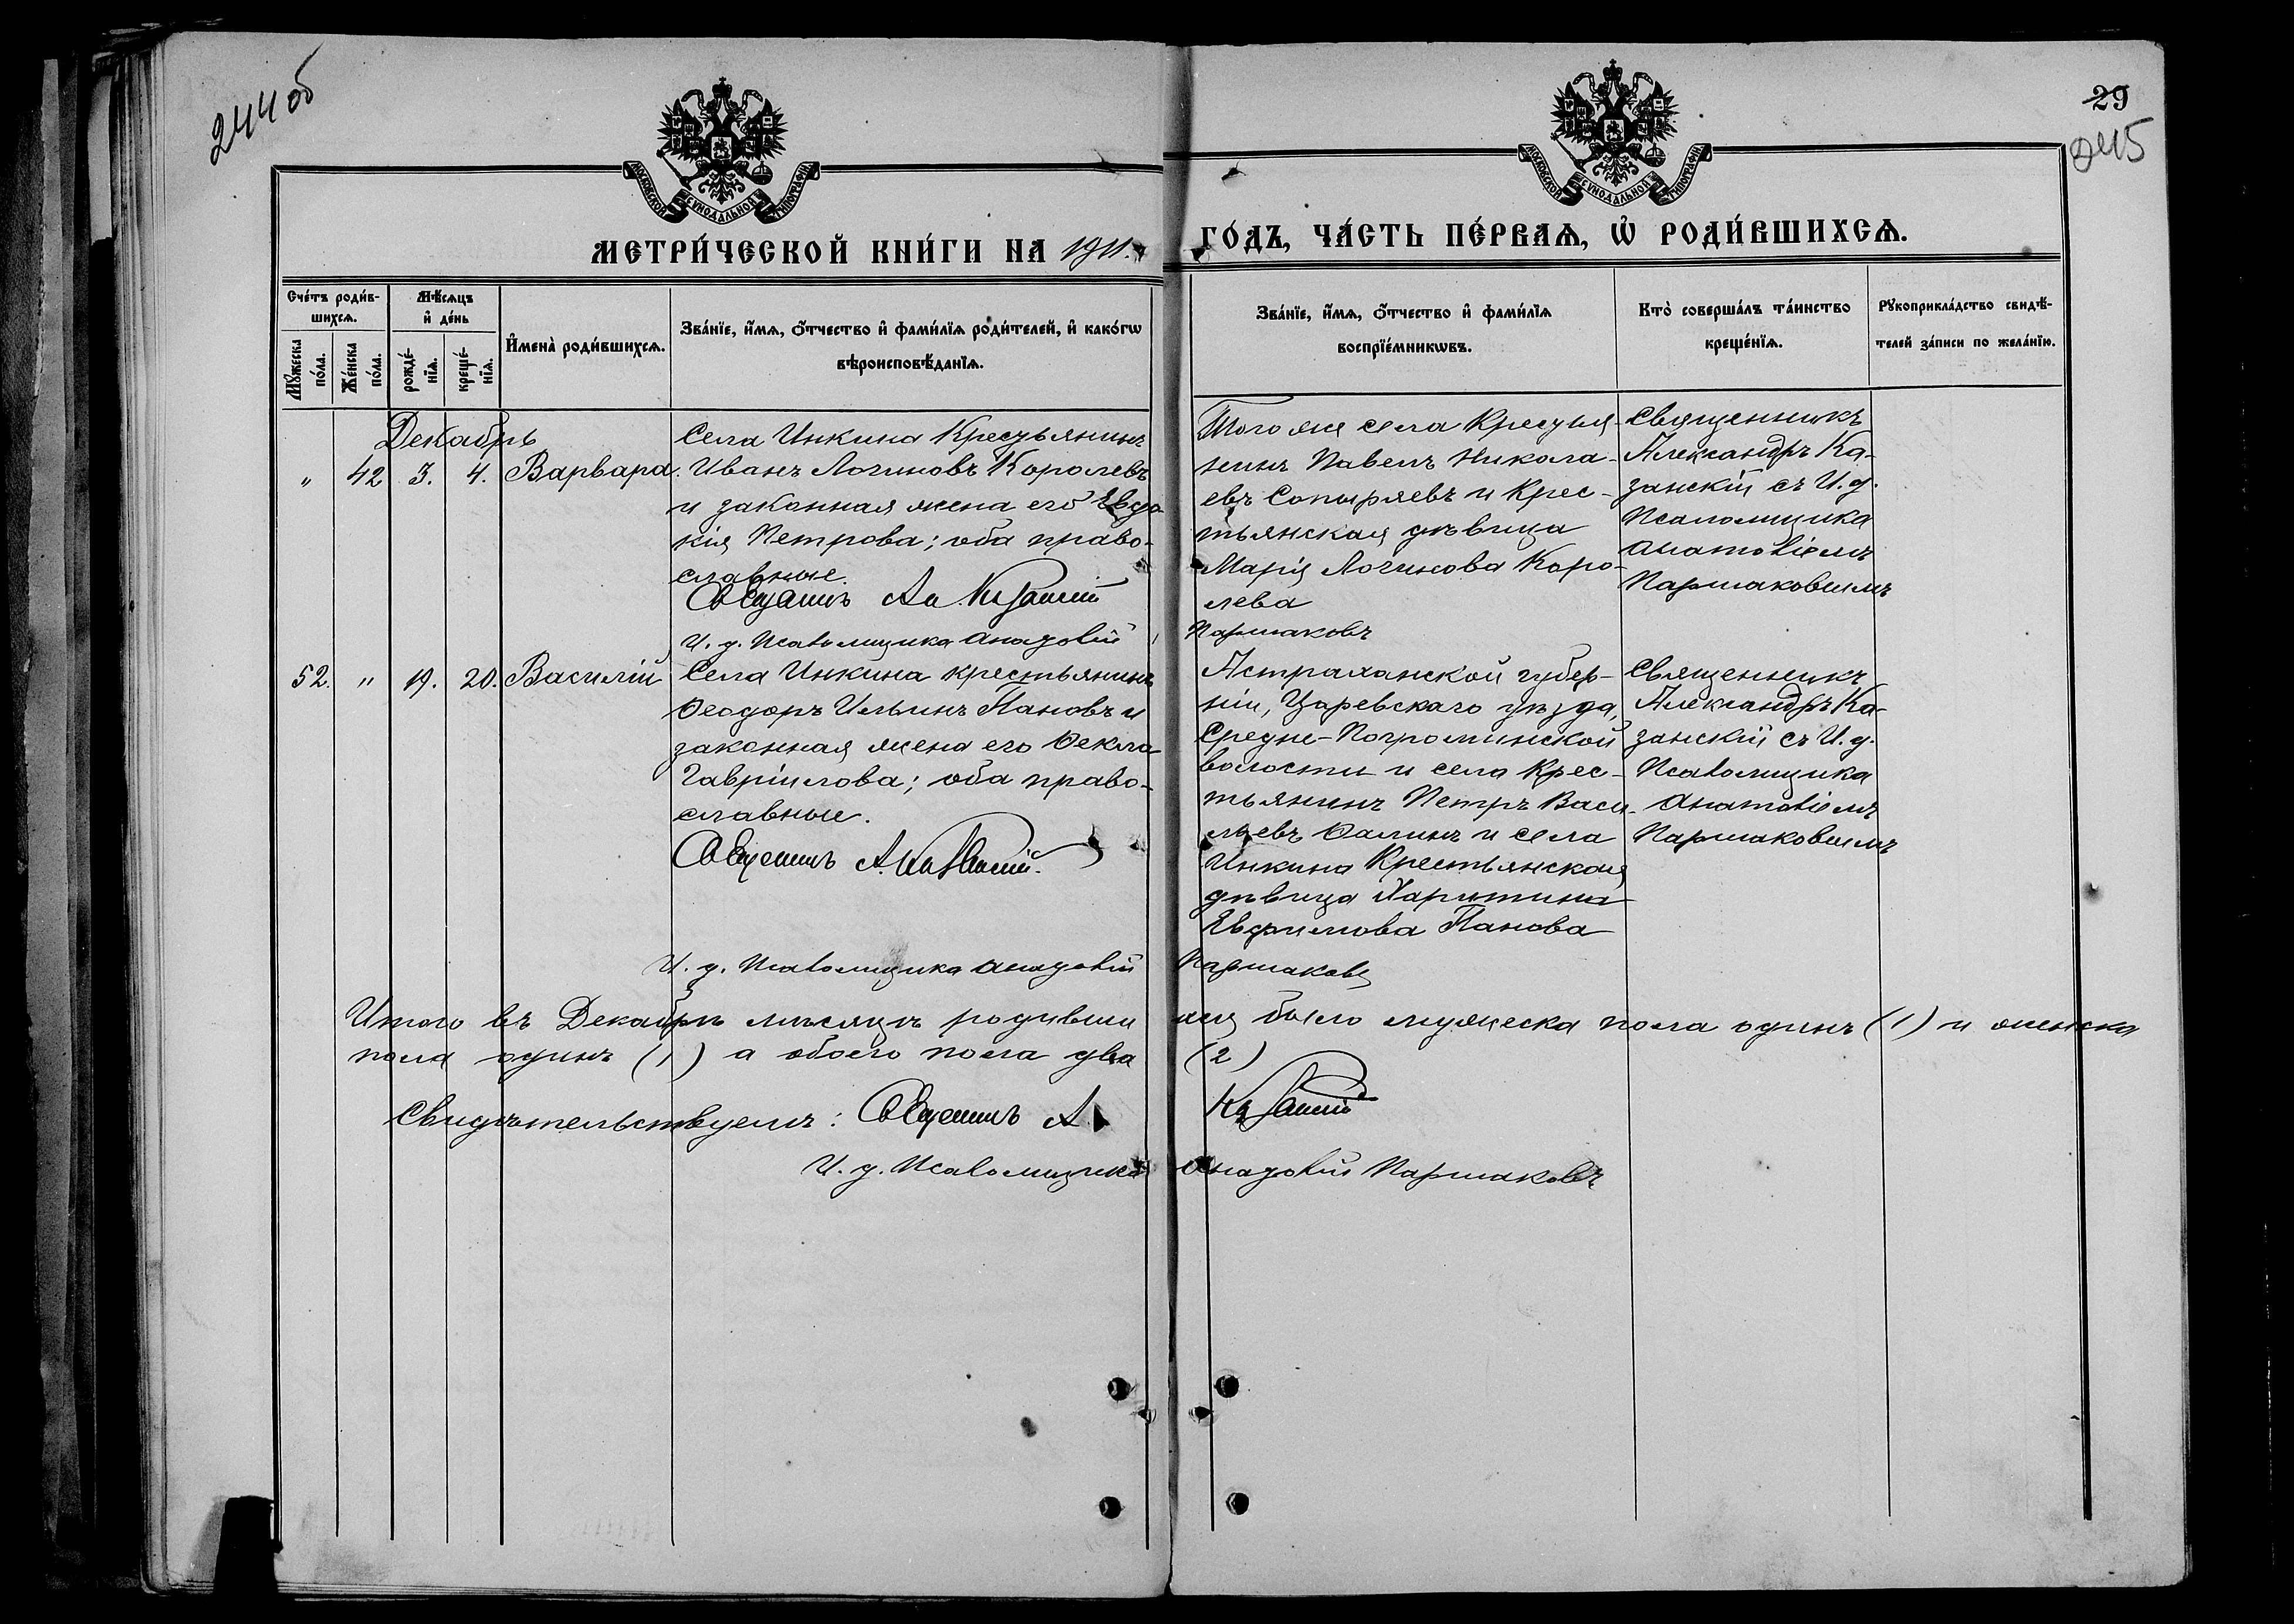 244 об
29
245
МОСКОВСКОЙ СѴНОДАЛЬНОЙ ТИПОГРАФІИ
МОСКОВСКОЙ СѴНОДАЛЬНОЙ ТИПОГРАФІИ
МЕТРИ́ЧЕСКОЙ КНИ́ГИ НА 1911. ГО́ДЪ, ЧА́СТЬ ПЕ́РВАѦ, Ѡ҆ РОДИ́ВШИХСѦ.
Сче́тъ роди́вшихсѧ.
Мꙋ́жеска по́ла.
Же́нска по́ла.
Мѣ́сѧцъ и҆ де́нь
рожде́нїѧ.
креще́нїѧ.
И҆мена̀ роди́вшихсѧ.
Зва́нїе, и҆́мѧ, ѻ҆́тчество и҆ фами́лїѧ роди́телей, и҆ како́гѡ
вѣроисповѣ́данїѧ.
Зва́нїе, и҆́мѧ, ѻ҆́тчество и҆ фами́лїѧ
воспрїе́мникѡвъ.
Кто̀ соверша́лъ та́инство
креще́нїѧ.
Рꙋкоприкла́дство свидѣ́-
телей за́писи по жела́нїю.
Декабрь
" 42 3. 4. Варвара.
Села Инкина Крестьянинъ
Иванъ Логиновъ Королевъ
и законная жена его Евдо
кія Петрова; оба право-
славные.
Священникъ Ал. Казанскій
И. д. Псаломщика Анатолій Паршаковъ
Того же села Крестья-
нинъ Павелъ Никола-
евъ Сопыряевъ и Крес-
тьянская дѣвица
Марія Логинова Коро-
лева
Священникъ
Александръ Ка-
занскій съ И. д.
Псаломщика
Анатоліемъ
Паршаковымъ
52. " 19. 20. Василій
Села Инкина крестьянинъ
Ѳеодоръ Ильинъ Пановъ и
законная жена его Ѳекла
Гавріилова; оба право-
славные.
Священникъ А. Казанскій.
И. д. Псаломщика Анатолій Паршаковъ
Астраханской губер-
ніи, Царевскаго уѣзда,
Средне-Погроминской
волости и села Крес-
тьянинъ Петръ Васи-
льевъ Ѳалинъ и села
Инкина Крестьянская
дѣвица Харитина
Евфимова Панова
Священникъ
Александръ Ка-
занскій съ И. д.
Псаломщика
Анатоліемъ
Паршаковымъ
Итого въ Декабрѣ мѣсяцѣ родивши хся было мужеска пола одинъ (1) и женска
пола одинъ (1) а обоего пола два (2)
Свидѣтельствуемъ: Священникъ А. Казанскій
И. д. Псаломщика Анатолій Паршаковъ